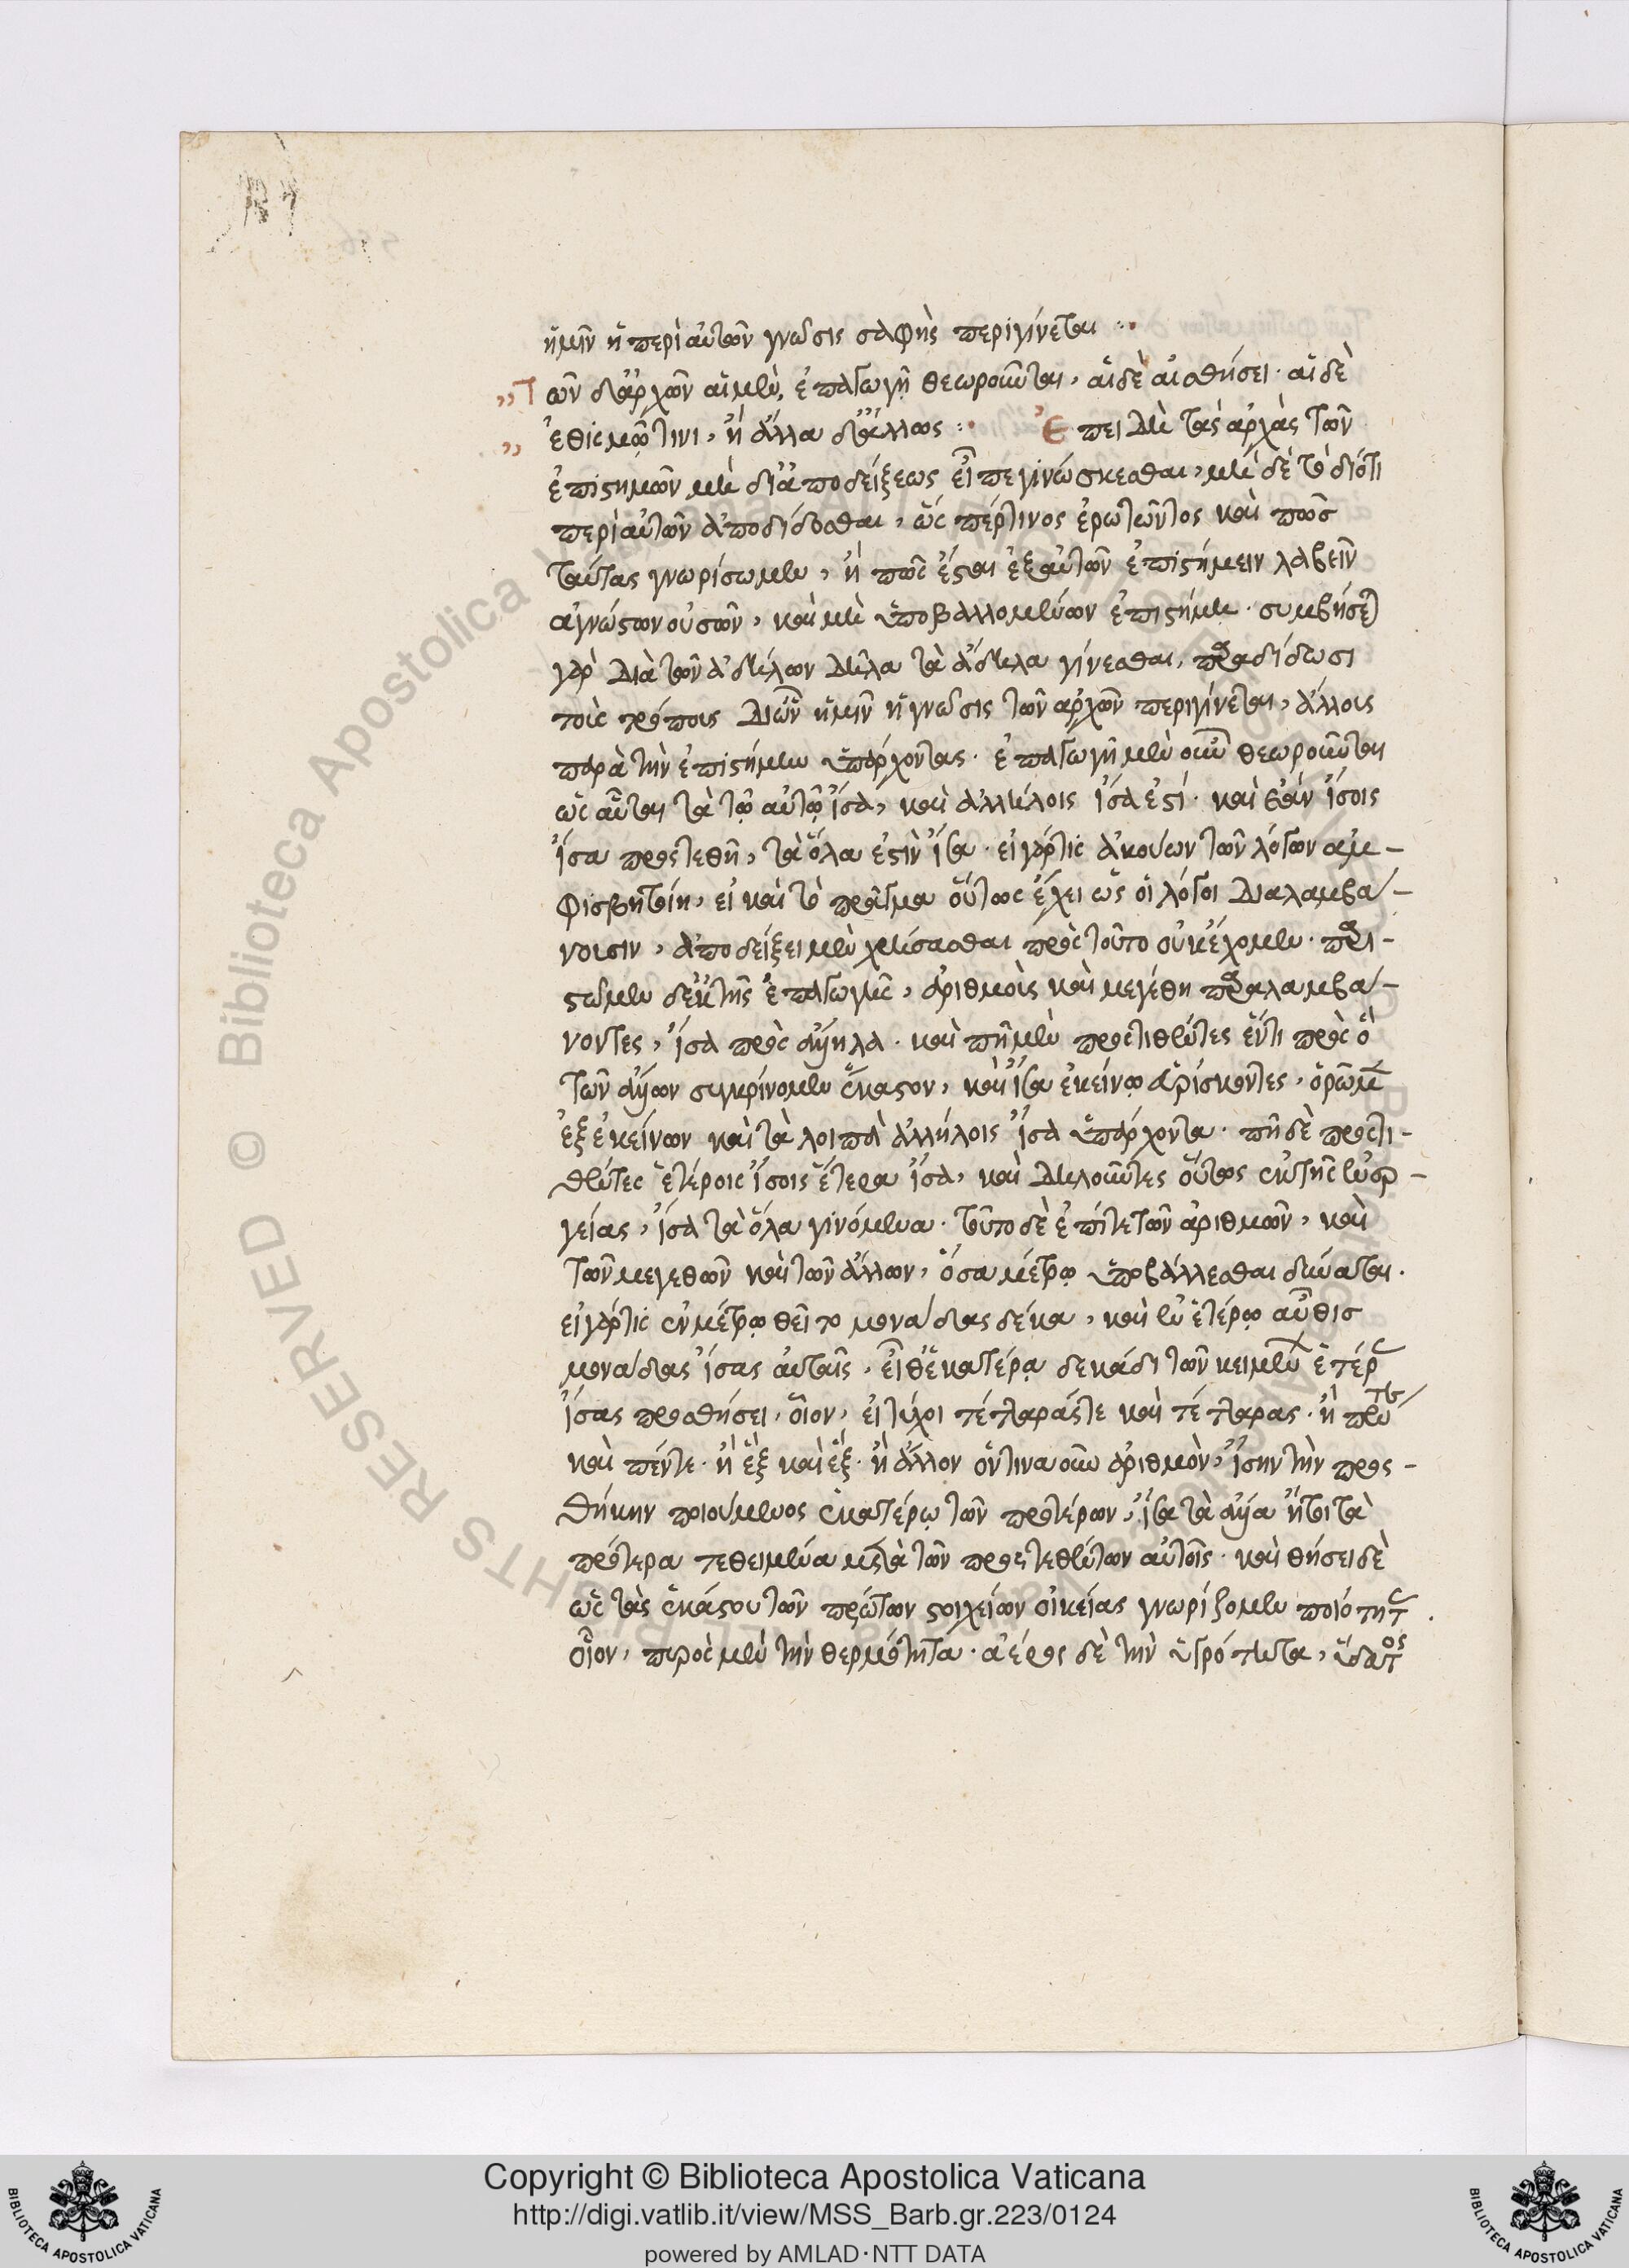 ἡμῖν ἡ περὶ αὐτῶν γνῶσις σαφὴς περιγίνεται :·
„ Τῶν δ' ἀρχῶν αἱ μὲν, ἐπαγωγῇ θεωροῦνται, αἱ δὲ αἰσθήσει· αἱ δὲ
„ ἐθισμῷ τινι, ἢ ἄλλα δ' ἄλλως :· Ἐπειδὴ τὰς ἀρχὰς τῶν
ἐπιστημῶν μὴ δι' ἀποδείξεως εἶπε γινώσκεσθαι, μὴ δὲ τὸ διότι
περὶ αὐτῶν ἀποδίδοσθαι, ὥσπέρ τινος ἐρωτῶντος καὶ πῶς
ταύτας γνωρίσωμεν, ἢ πῶς ἔσται ἐξ αὐτῶν ἐπιστήμειν λαβεῖν
ἀγνώστων οὐσῶν, καὶ μὴ ὑποβαλλομένων ἐπιστήμη· συμβήσεται
γὰρ διὰ τῶν ἀδήλων δῆλα τὰ ἄδηλα γίνεσθαι, παραδίδωσι
τοὺς τρόπους δι' ὧν ἡμῖν ἡ γνῶσις τῶν ἀρχῶν περιγίνεται, ἄλλοις
παρὰ τὴν ἐπιστήμην ὑπάρχοντας· ἐπαγωγῇ μὲν οὖν θεωροῦνται
ὡς αὗται τὰ τῷ αὐτῷ ἴσα, καὶ ἀλλήλοις ἴσα ἐστί· καὶ ἐὰν ἴσοις
ἴσα προστεθῇ, τὰ ὅλα ἐστὶν ἴσα· εἰ γάρ τις ἀκούων τῶν λόγων ἀμ-
φισβητοίη, εἰ καὶ τὸ πρᾶγμα οὕτως ἔχει ὡς οἱ λόγοι διαλαμβά-
νουσιν, ἀποδείξει μὲν χρήσασθαι πρὸς τοῦτο οὐκ ἔχομεν· παρι-
στῶμεν δ' ἐκ τῆς ἐπαγωγῆς, ἀριθμοὺς καὶ μεγέθη παραλαμβά-
νοντες, ἴσα πρὸς ἄλληλα· καὶ πῆ μὲν προστιθέντες ἕν τι πρὸς ὃ
τῶν ἄλλων συγκρίνομεν ἕκαστον, καὶ ἴσα ἐκείνῳ εὑρίσκοντες, ὁρῶμεν
ἐξ ἐκείνων καὶ τὰ λοιπὰ ἀλλήλοις ἴσα ὑπάρχοντα· πῆ δὲ προστι-
θέντες ἑτέροις ἴσοις ἕτερα ἴσα, καὶ δηλοῦντες οὕτως ἐκ τῆς ἐναρ-
γείας, ἴσα τὰ ὅλα γινόμενα· τοῦτο δὲ ἐπί τε τῶν ἀριθμῶν, καὶ
τῶν μεγεθῶν καὶ τῶν ἄλλων, ὅσα μέτρῳ ὑποβάλλεσθαι δύναται·
εἰ γάρ τις ἐν μέτρῳ θεῖτο μονάδας δέκα, καὶ ἐν ἑτέρῳ αὖθις
μονάδας ἴσας αὐταῖς, εἶθ' ἑκατέρᾳ δεκάδι τῶν κειμένων ἑτέρας
ἴσας προσθήσει, οἷον, εἰ τύχοι τέτταράς τε καὶ τέτταρας· ἢ πέντε
καὶ πέντε· ἢ ἓξ καὶ ἓξ· ἢ ἄλλον ὅντινα οὖν ἀριθμὸν, ἴσην τὴν προσ-
θήκην ποιούμενος ἑκατέρῳ τῶν προτέρων, ἴσα τὰ ἄλλα ἤτοι τὰ
πρότερα τεθειμένα μετὰ τῶν προστεθέντων αὐτοῖς· καὶ θήσει δὲ
ὡς τὰς ἑκάστου τῶν πρώτων στοιχείων οἰκείας γνωρίζομεν ποιότητας.
οἷον, πυρὸς μὲν τὴν θερμότητα· ἀέρος δὲ τὴν ὑγρότητα, ὕδατος